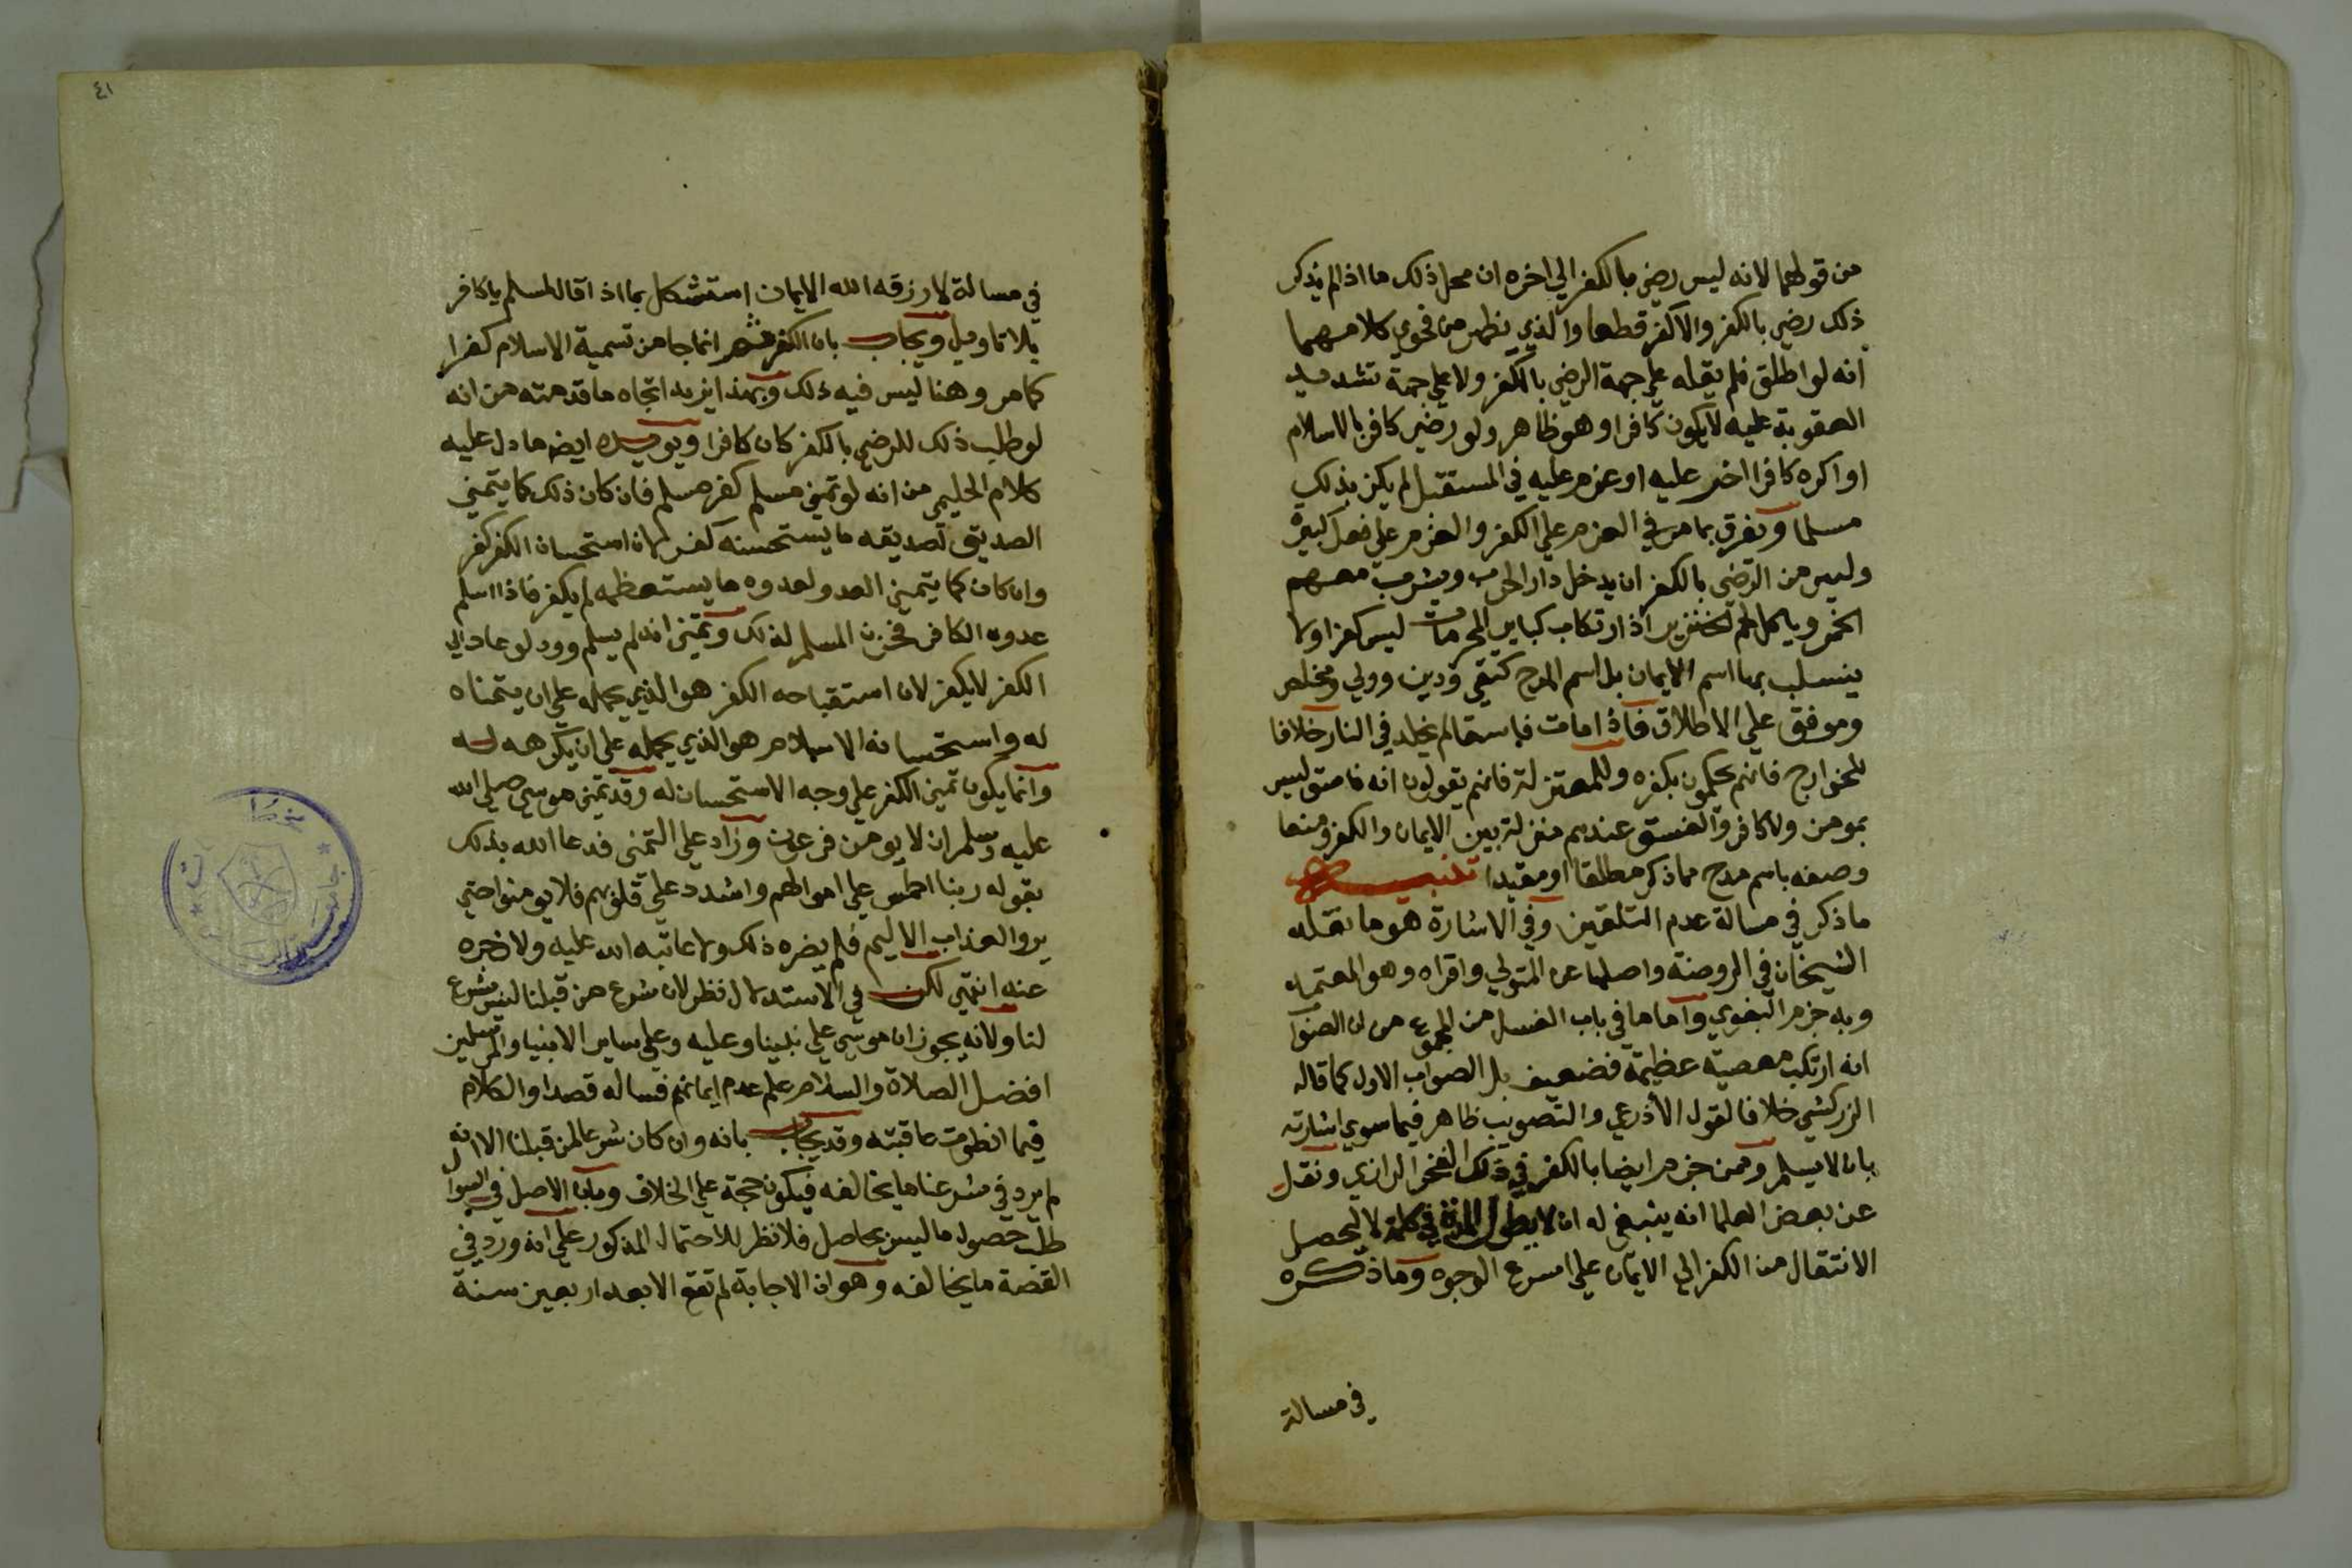 من قولهما لانه ليس رضي بالكفر الي اخره ان محل ذلك ما اذا لم يذكر
ذلك رضي بالكفر والا كفر قطعا والذي يظهر من فحوي كلامهما
انه لو اطلق فلم يقله علي جهة الرضي بالكفر ولا علي جهة تشديد
العقوبة عليه لا يكون كافرا وهو ظاهر ولو رضي كافر بالاسلام
او اكره كافرا اخر عليه او عزم عليه في المستقبل لم يكن بذلك
مسلما ويفرق بما مر في العزم علي الكفر والعزم علي فعل كبيرة
وليس من الرضي بالكفر ان يدخل دار الحرب ويشرب معهم
الخمر وياكل لحم الخنزير اذ ارتكاب كباير المحرمات ليس كفرا ولا
ينسلب بها اسم الايمان بل اسم المدح كتقي ودين وولي ومخلص
وموفق علي الاطلاق فاذا مات فاسقا لم يخلد في النار خلافا
للخوارج فانهم يحكمون بكفره وللمعتزلة فانهم يقولون انه فاسق ليس
بمومن ولا كافر والفسق عندهم منزلة بين الايمان والكفر ومنعا
وصفه باسم مدح مما ذكر مطلقا او مقيدا تنبيه
ما ذكر في مسالة عدم التلقين وفي الاشارة هو ما نقله
الشيخان في الروضة واصلها عن المتولي واقراه وهو المعتمد
وبه جزم البغوي واما ما في باب الغسل من المجموع من ان الصواب
انه ارتكب معصية عظيمة فضعيف بل الصواب الاول كما قاله
الزركشي خلافا لقول الاذرعي والتصويب ظاهر فيما سوي اشارته
بان لا يسلم وممن جزم ايضا بالكفر في ذلك الفخر الرازي ونقل
عن بعض العلما انه ينبغي له ان لا يطول المدة في كلمة لا ليحصل
الانتقال من الكفر الي الايمان علي اسرع الوجوه وما ذكره
في مسالة
٤١
في مسالة لا رزقه الله الايمان استشكل بما اذا قال لمسلم يا كافر
بلا تاويل ويجاب بان الكفر ثم انما جا من تسمية الاسلام كفرا
كما مر وهنا ليس فيه ذلك وبهذا يزيد اتجاه ما قدمته من انه
لو طلب ذلك للرضي بالكفر كان كافرا ويويده ايضا ما دل عليه
كلام الحليمي من انه لو تمني مسلم كفر مسلم فان كان ذلك كما يتمني
الصديق لصديقه ما يستحسنه كفر لان استحسان الكفر كفر
وان كان كما يتمني العدو لعدوه ما يستعظمه لم يكفر فاذا اسلم
عدوه الكافر فحزن المسلم لذلك وتمني انه لم يسلم وود لو عاد الي
الكفر لا يكفر لان استقباحه الكفر هو الذي يحمله علي ان يتمناه
له واستحسانه الاسلام هو الذي يحمله علي ان يكرهه له
وانما يكون تمني الكفر علي وجه الاستحسان له وقد تمني موسي صلي الله
عليه وسلم ان لا يومن فرعون وزاد علي التمني فدعا الله بذلك
بقوله ربنا اطمس علي اموالهم واشدد علي قلوبهم فلا يومنوا حتي
يروا العذاب الاليم فلم يضره ذلك ولا عاتبه الله عليه ولا زجره
عنه انتهي لكن في الاستدلال نظر لان شرع من قبلنا ليس شرع
لنا ولانه يجوز ان موسي علي نبينا وعليه وعلي ساير الانبيا والمرسلين
افضل الصلاة والسلام علم عدم ايمانهم فساله قصدا والكلام
فيما انطوت عاقبته وقد يجاب بانه وان كان شرعا لمن قبلنا الا انه
لم يرد في شرعنا ما يخالفه فيكون حجة علي الخلاف وبان الاصل في السوال
طلب حصول ما ليس بحاصل فلا نظر للاحتمال المذكور علي انه ورد في
القصة ما يخالفه وهو ان الاجابة لم تقع الا بعد اربعين سنة